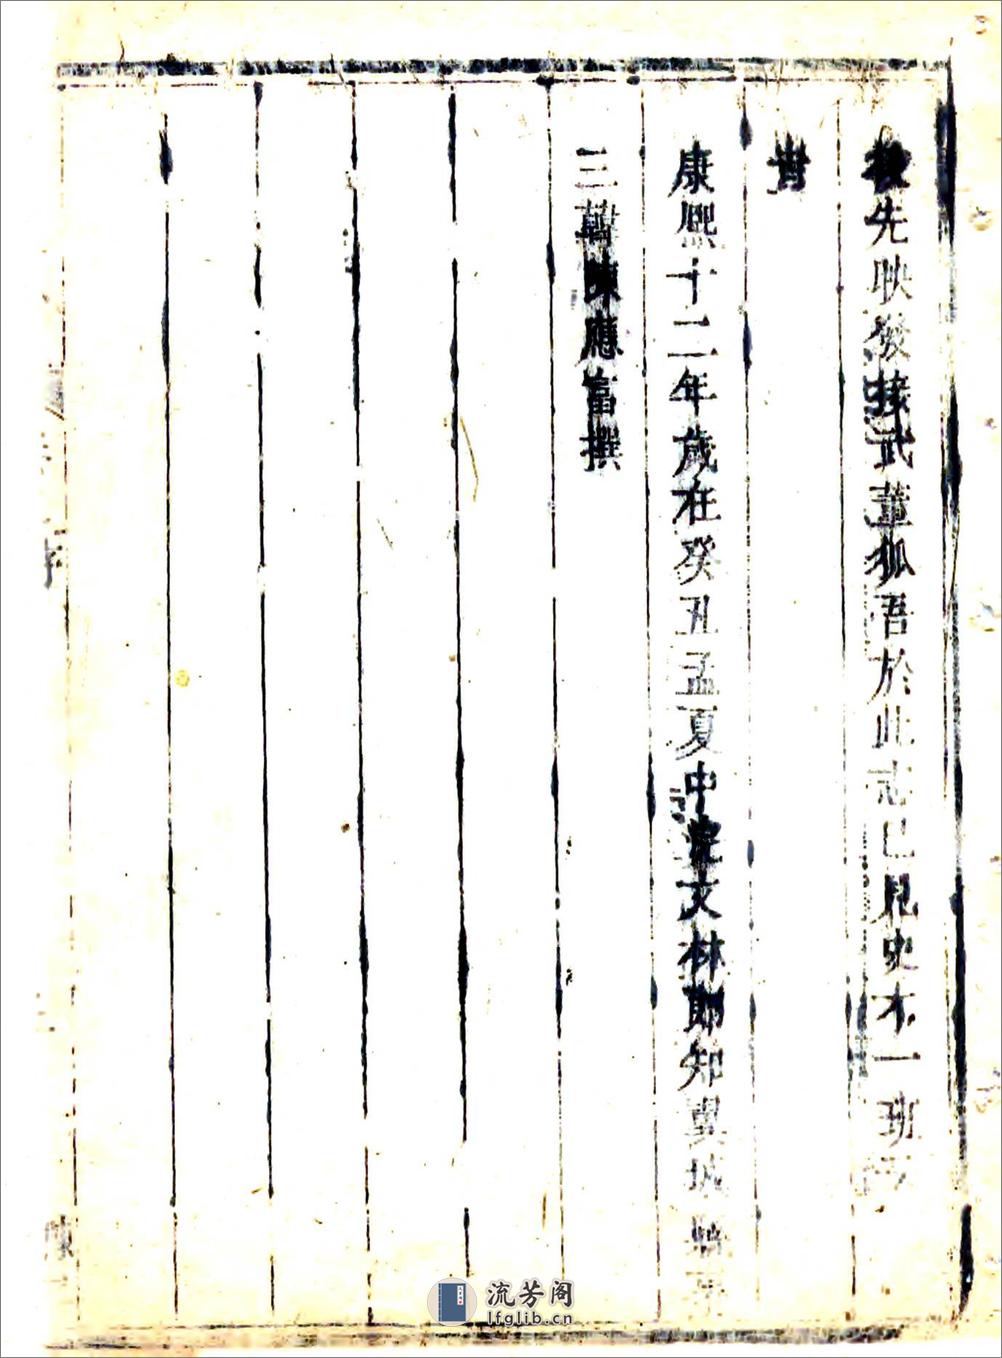 後先映發接武董狐吾於此志已見史才一班
旹
康熙十二年歲在癸丑孟夏中浣文林郎知翼城縣
三韓陳應富撰
流芳阁
lfglib.cn